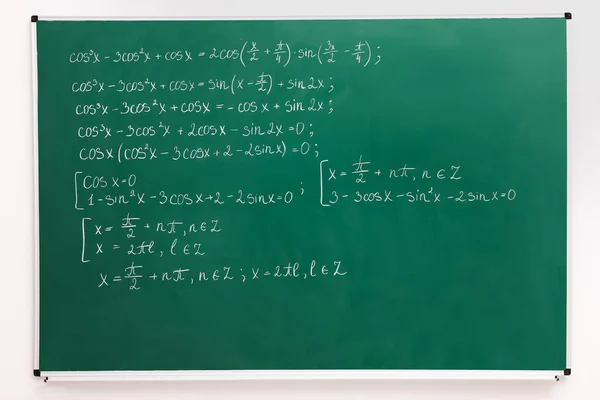 cos³x − 3cos²x + cosx = 2cos(x/2 + π/4) · sin(3x/2 − π/4) ;
cos³x − 3cos²x + cosx = sin(x − π/2) + sin2x ;
cos³x − 3cos²x + cosx = −cosx + sin2x ;
cos³x − 3cos²x + 2cosx − sin2x = 0 ;
cosx (cos²x − 3cosx + 2 − 2sinx) = 0 ;
[ cosx = 0
1 − sin²x − 3cosx + 2 − 2sinx = 0 ;
[ x = π/2 + nπ, n ∈ Z
3 − 3cosx − sin²x − 2sinx = 0
[ x = π/2 + nπ, n ∈ Z
x = 2πl, l ∈ Z
x = π/2 + nπ, n ∈ Z ; x = 2πl, l ∈ Z